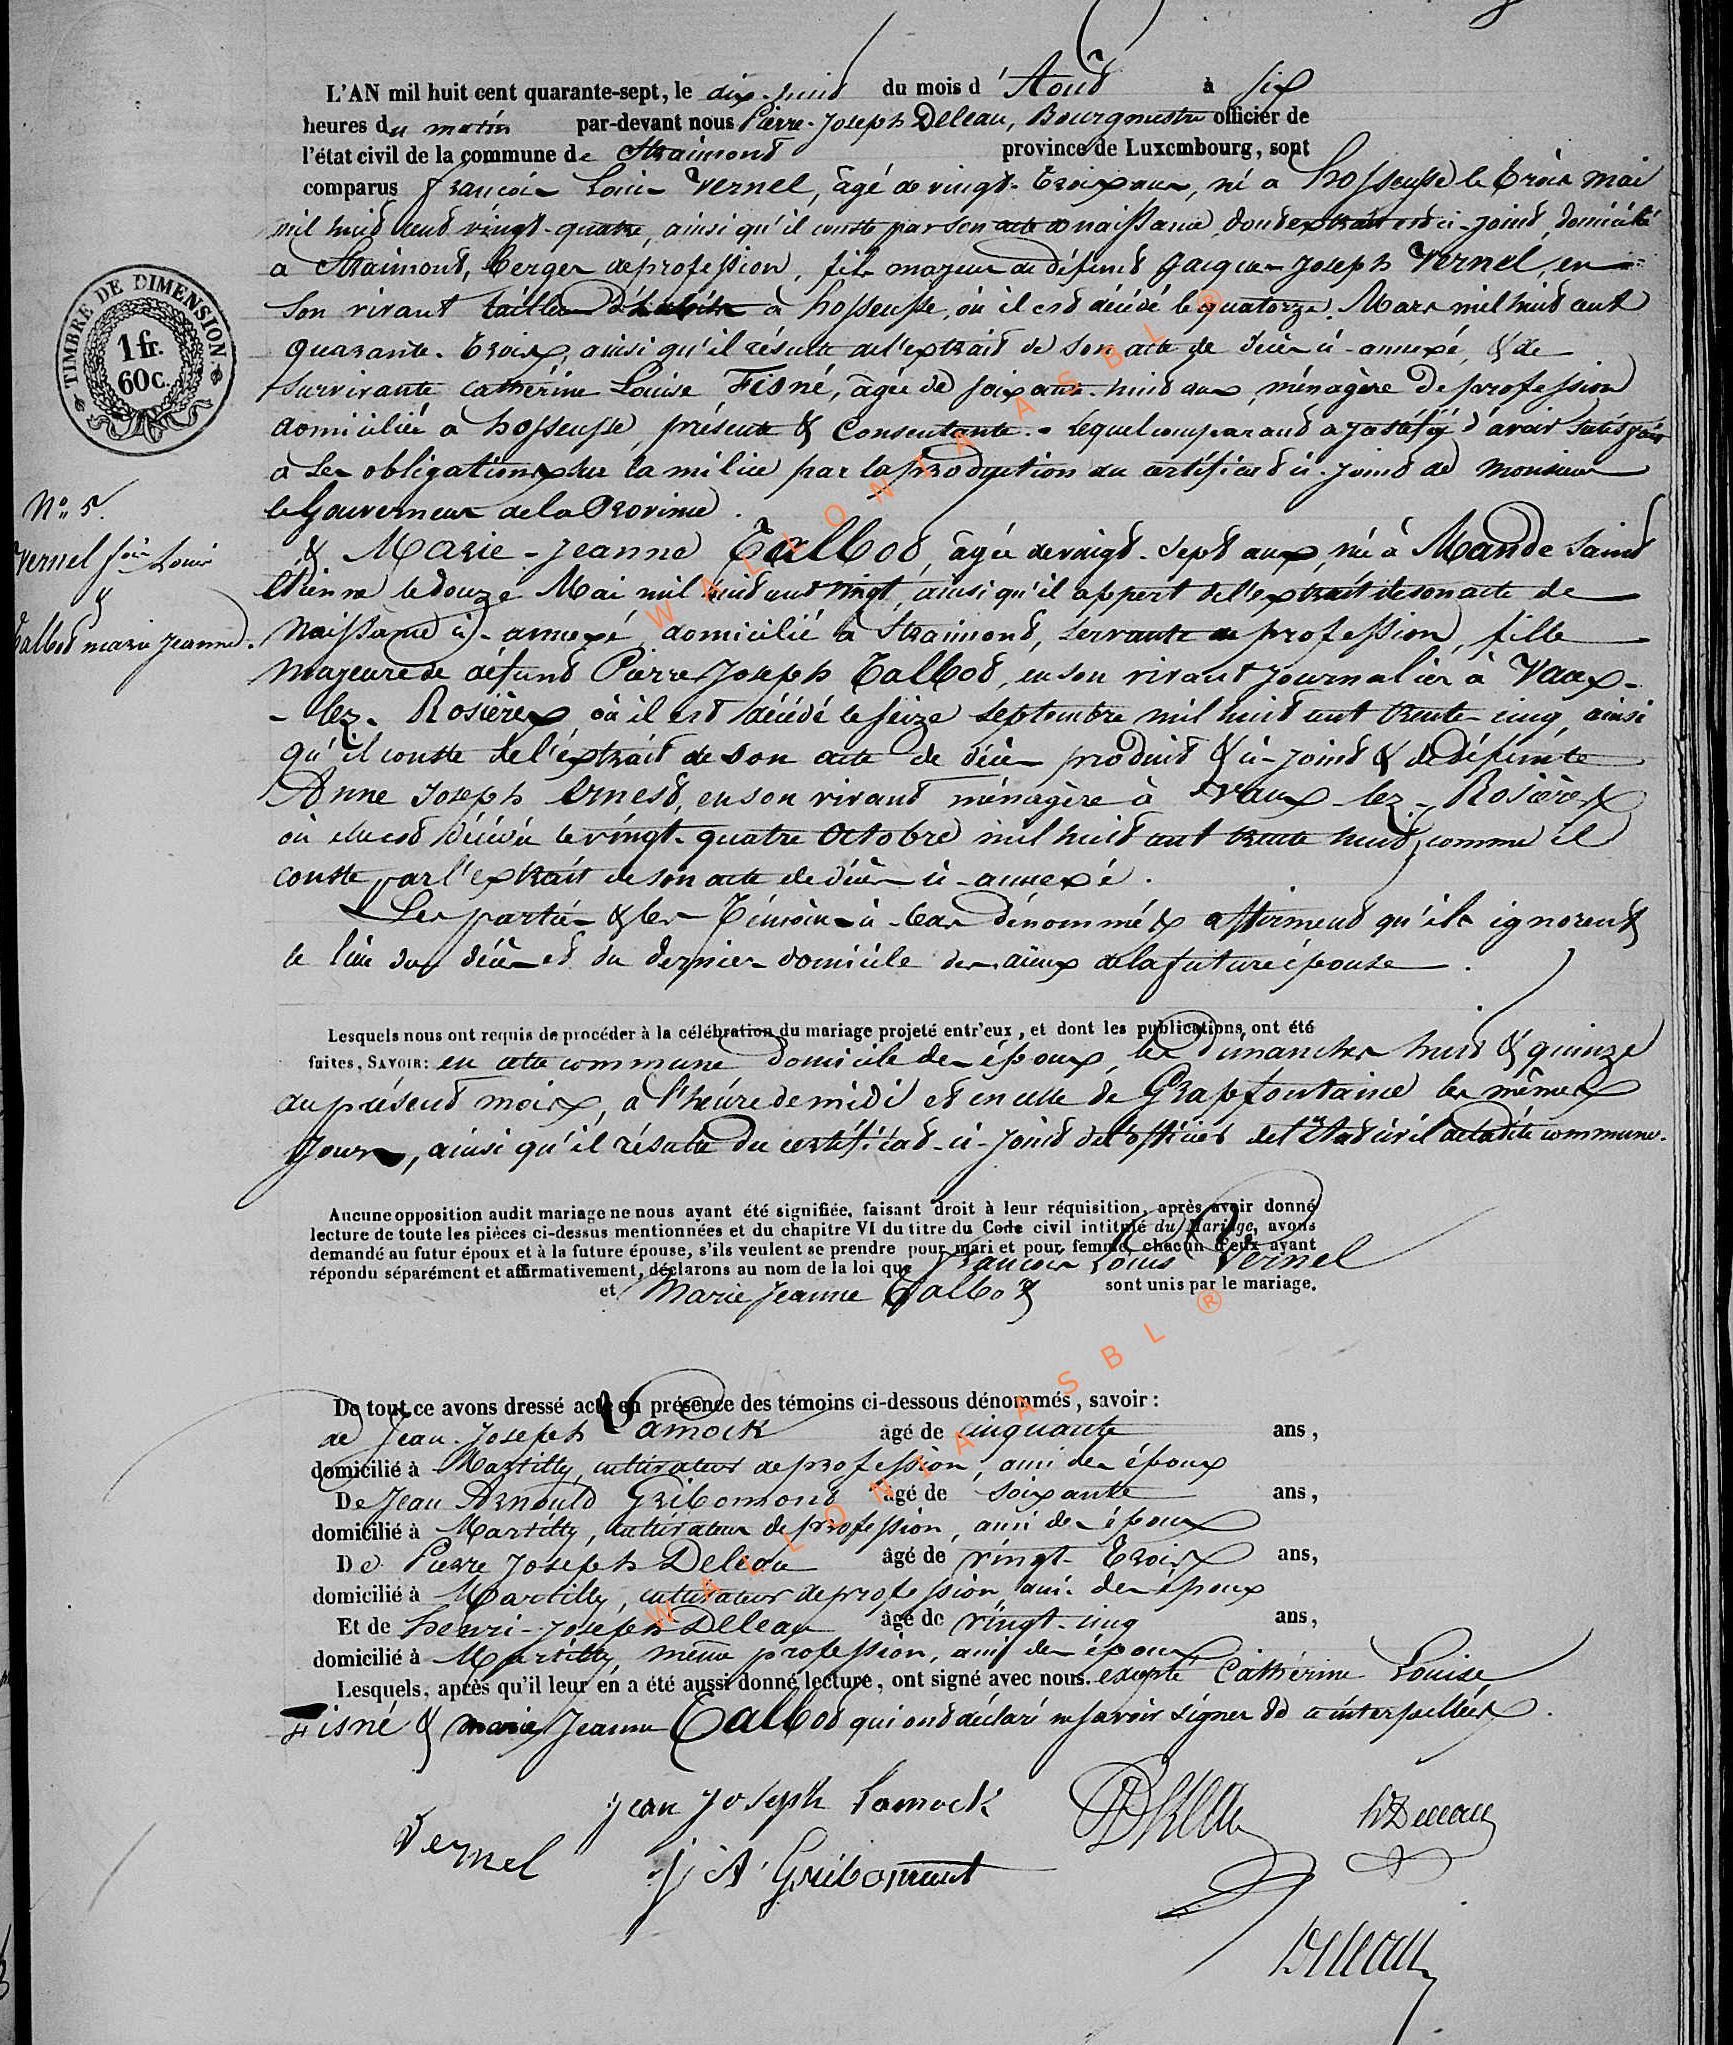 L'AN mil huit cent quarante-sept, le dix-huit du mois d'Aout à six
heures du matin par-devant nous Pierre-Joseph Deleau, Bourgmestre officier de
l'état civil de la commune de Straimont province de Luxembourg, sont
comparus François Louis Vernel, âgé de vingt-trois ans, né à hosseusse le trois mai
mil huit cent vingt-quatre, ainsi qu'il conste par son acte de naissance, dont extrait est ci-joint, domicilié
a Straimont, berger de profession, fils majeur de défunt Jacques-Joseph Vernel, en
son vivant tailleur d'habits à hosseusse, où il est décédé le quatorze Mars mil huit cent
quarante-trois, ainsi qu'il résulte de l'extrait de son acte de décès ci-annexé, & de
survivante Cathérine Louise Fisné, âgée de soixante-huit ans, ménagère de profession
domiciliée à hosseusse, présente & consentante. - lequel comparant a justifié d'avoir satisfait
à ses obligations sur la milice par la production du certificat ci-joint de monsieur
le Gouverneur de la Province.
& Marie-Jeanne Talbot, âgée de vingt-sept ans, née à Mande Saint
Etienne le douze Mai mil huit cent vingt, ainsi qu'il appert de l'extrait de son acte de
Naissance ci-annexé, domicilié à Straimont, servante de profession, fille
majeure de défunt Pierre Joseph Talbot, en son vivant journalier à Vaux-
-lez-Rosières où il est décédé le seize septembre mil huit cent trente-cinq ainsi
qu'il conste de l'extrait de son acte de décès produit & ci-joint & de défunte
Anne Joseph Ernest, en son vivant ménagère à Vaux-lez-Rosières
où elle est décédée le vingt-quatre Octobre mil huit cent trente huit, comme il
conste par l'extrait de son acte de décès ci-annexé.
Les parties & les Témoins ci-bas dénommés affirment qu'ils ignorent
le lieu du décès et du dernier domicile des aieux de la future épouse.
N° 5
Vernel fois Louis
&
Talbot marie jeanne.
TIMBRE DE DIMENSION
1 fr.
60 c.
Lesquels nous ont requis de procéder à la célébration du mariage projeté entr'eux, et dont les publications ont été
faites, SAVOIR: en cette commune domicile des époux, les dimanches huit & quinze
du présent mois, à l'héure de midi et en celle de Grapfontaine les mêmes
jours, ainsi qu'il résulte du certificat ci-joint de l'officier de l'Etat civil de ladite commune.
Aucune opposition audit mariage ne nous ayant été signifiée, faisant droit à leur réquisition, après avoir donné
lecture de toute les pièces ci-dessus mentionnées et du chapitre VI du titre du Code civil intitulé du Mariage, avons
demandé au futur époux et à la future épouse, s'ils veulent se prendre pour mari et pour femme, chacun d'eux ayant
répondu séparément et affirmativement, déclarons au nom de la loi que François Louis Vernel
et Marie Jeanne Talbot sont unis par le mariage.
De tout ce avons dressé acte en présence des témoins ci-dessous dénommés, savoir:
de Jean-Joseph Lamock âgé de cinquante ans,
domicilié à Martilly, cultivateur de profession, ami des époux
De Jean Arnould Gribomont âgé de soixante ans,
domicilié à Martilly, cultivateur de profession, ami des époux
De Pierre Joseph Deleau âgé de vingt-trois ans,
domicilié à Martilly, cultivateur de profession, ami des époux
Et de henri-Joseph Deleau âgé de vingt-cinq ans,
domicilié à Martilly, même profession, ami des époux
Lesquels, après qu'il leur en a été aussi donné lecture, ont signé avec nous. excepté Cathérine Louise
Fisné & marie Jeanne Talbot qui ont déclaré ne savoir signer de ce interpellées.
Jean Joseph Lamock
PJDeleau
hDeleau
Vernel
J A Gribomont
Deleau
WALLONIA ASBL ®
WALLONIA ASBL ®